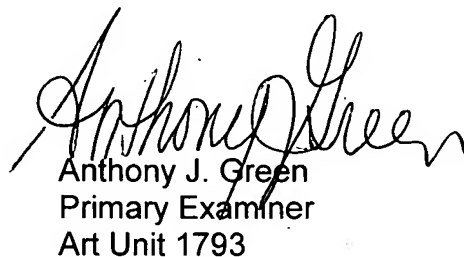 Anthony J. Green
Anthony J. Green
Primary Examiner
Art Unit 1793